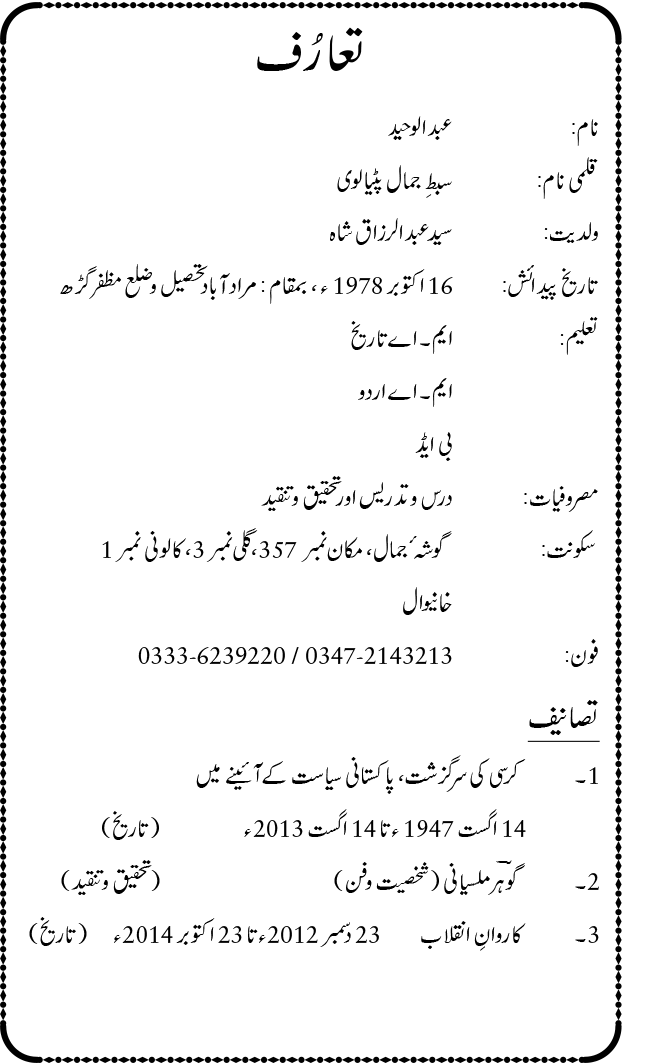 تعارُف
نام: عبدالوحید
قلمی نام: سبطِ جمال پٹیالوی
ولدیت: سیدعبدالرزاق شاہ
تاریخ پیدائش: 16 اکتوبر 1978ء، بمقام : مراد آباد تحصیل وضلع مظفرگڑھ
تعلیم: ایم۔اے تاریخ
ایم۔اے اردو
بی ایڈ
مصروفیات: درس و تدریس اور تحقیق و تنقید
سکونت: گوشۂ جمال، مکان نمبر 357، گلی نمبر 3، کالونی نمبر 1
خانیوال
فون: 0333-6239220 / 0347-2143213
تصانیف
1۔ کرسی کی سرگزشت، پاکستانی سیاست کے آئینے میں
14 اگست 1947ء تا 14 اگست 2013ء (تاریخ)
2۔ گوہرؔ ملسیانی (شخصیت وفن) (تحقیق وتنقید)
3۔ کاروانِ انقلاب 23 دسمبر 2012ء تا 23 اکتوبر 2014ء (تاریخ)